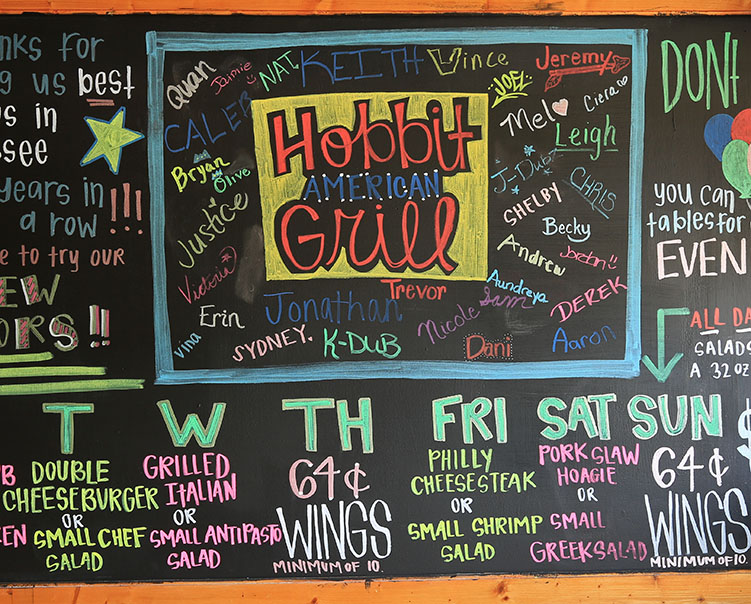 nks for
ng us best
s in
see
years in
a row !!!
e to try our
EW
ORS!!
Quan
Jaimie
NAT
KEITH
Vince
Jeremys
CALEB
JOEL
Mel
Ciera
Leigh
Bryan
Olive
Hobbit
AMERICAN
Grill
J-Dub
CHRIS
Justice
SHELBY
Becky
Andrew
Jordan
Victoria
Trevor
Aundreya
Erin
Jonathan
Nicole
Sam
DEREK
vina
SYDNEY.
K-DUB
Dani
Aaron
DONT
you can
tables for
EVEN
ALL DA
SALADS
A 32 OZ
B
EN
T
DOUBLE
CHEESEBURGER
OR
SMALL CHEF
SALAD
W
GRILLED
ITALIAN
OR
SMALL ANTIPASTO
SALAD
TH
64¢
WINGS
MINIMUM OF 10.
FRI
PHILLY
CHEESESTEAK
OR
SMALL SHRIMP
SALAD
SAT
PORK SLAW
HOAGIE
OR
SMALL
GREEK SALAD
SUN
64¢
WINGS
MINIMUM OF 10.
$